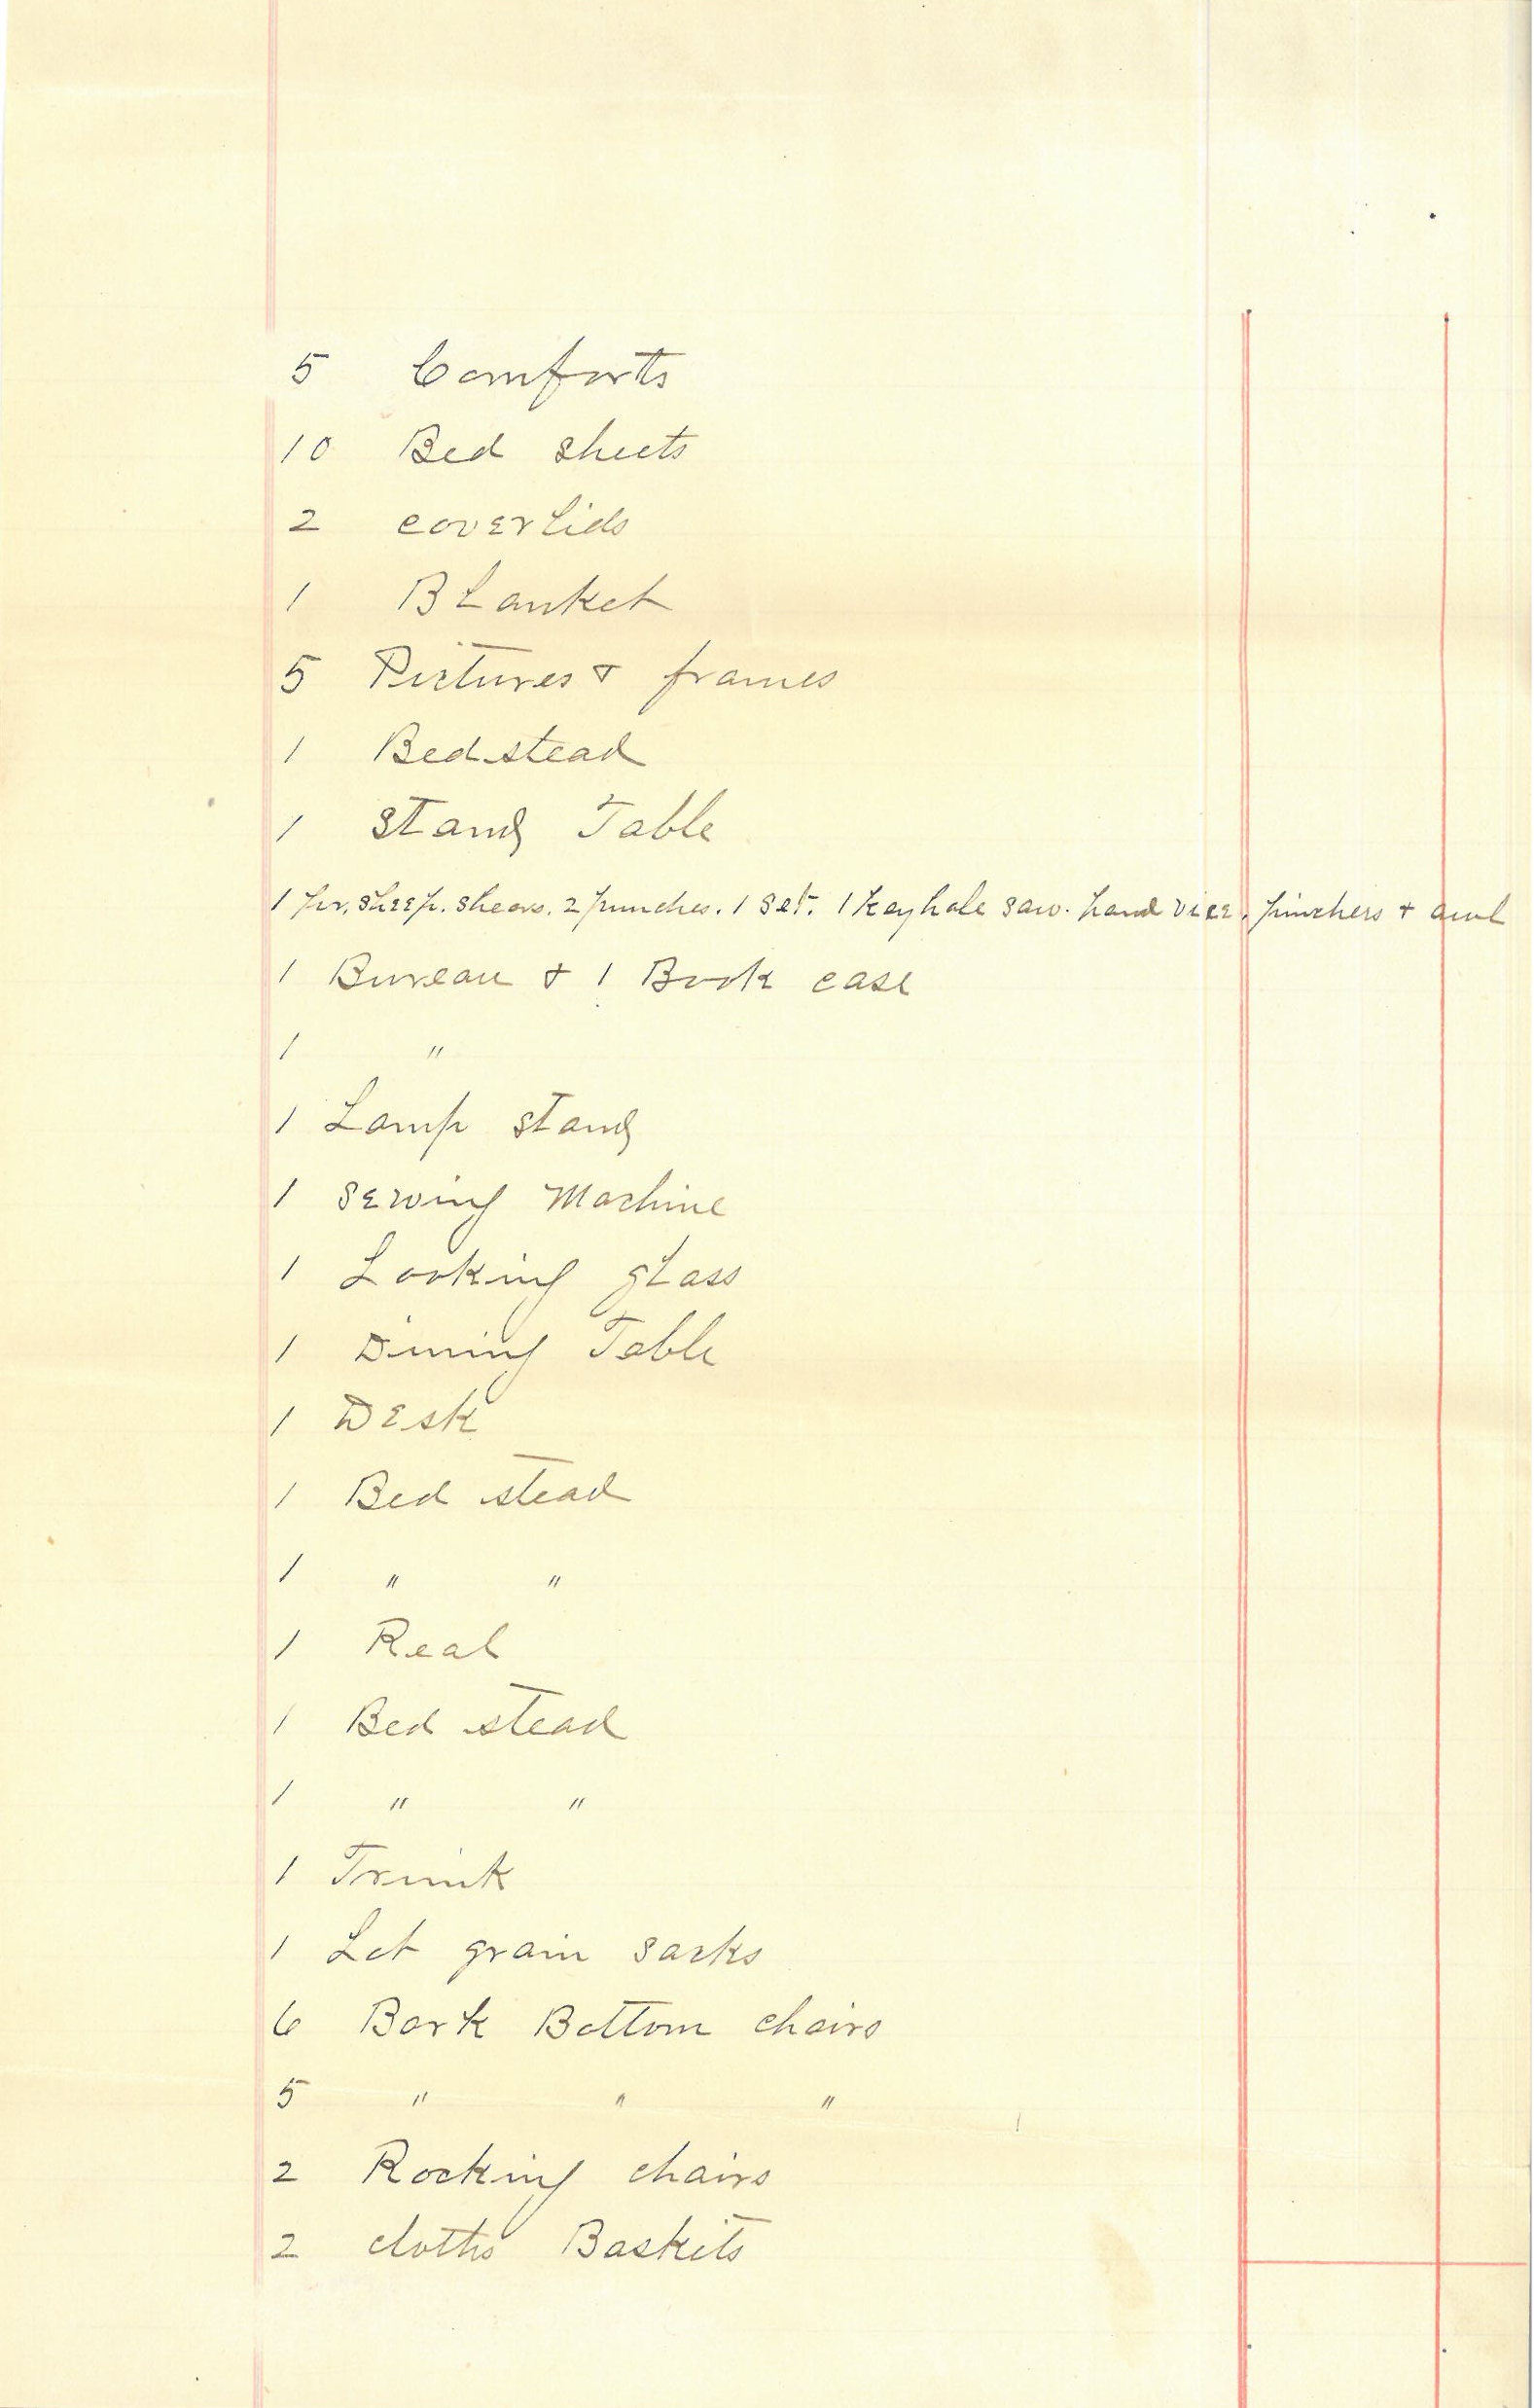 5 Comforts
10 Bed sheets
2 coverlids
1 Blanket
5 Pictures & frames
1 Bedstead
1 Stand Table
1 pr. sheep. shears. 2 punches. 1 set. 1 Keyhole saw. hand vice, pinchers & awl
1 Bureau & 1 Book case
1 "
1 Lamp stand
1 Sewing Machine
1 Looking glass
1 Dining Table
1 Desk
1 Bed stead
1 " "
1 Real
1 Bed stead
1 " "
1 Trunk
1 Lot grain sacks
6 Bark Bottom chairs
5 " " "
2 Rocking chairs
2 cloths Baskits